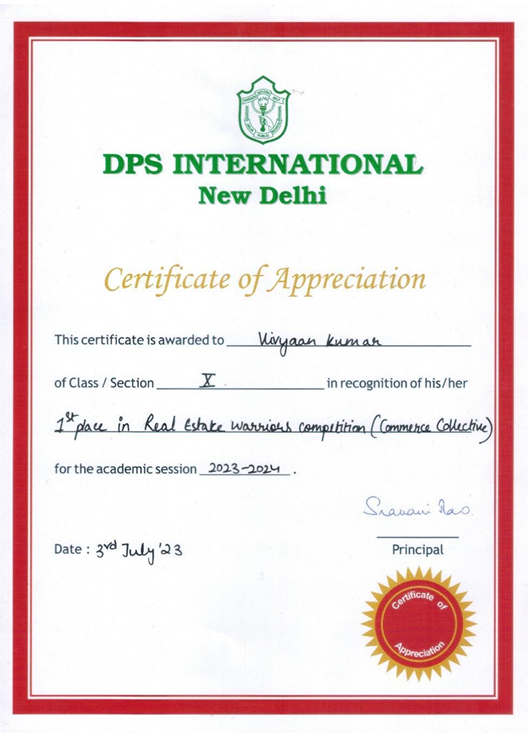 DPS INTERNATIONAL
New Delhi
Certificate of Appreciation
This certificate is awarded to Vivyaan Kumar
of Class / Section X in recognition of his/her
1st place in Real Estate Warriors competition (Commerce Collective)
for the academic session 2023-2024 .
Sravani Rao
Date : 3rd July '23
Principal
Certificate of
Appreciation